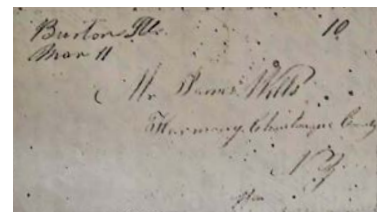 Burton Ills. 10
Mar 11
Mr James Wells
Harmony Chautauque County
N.Y.